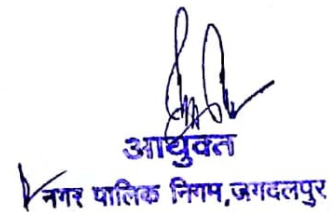 आयुक्त
नगर पालिक निगम,जगदलपुर